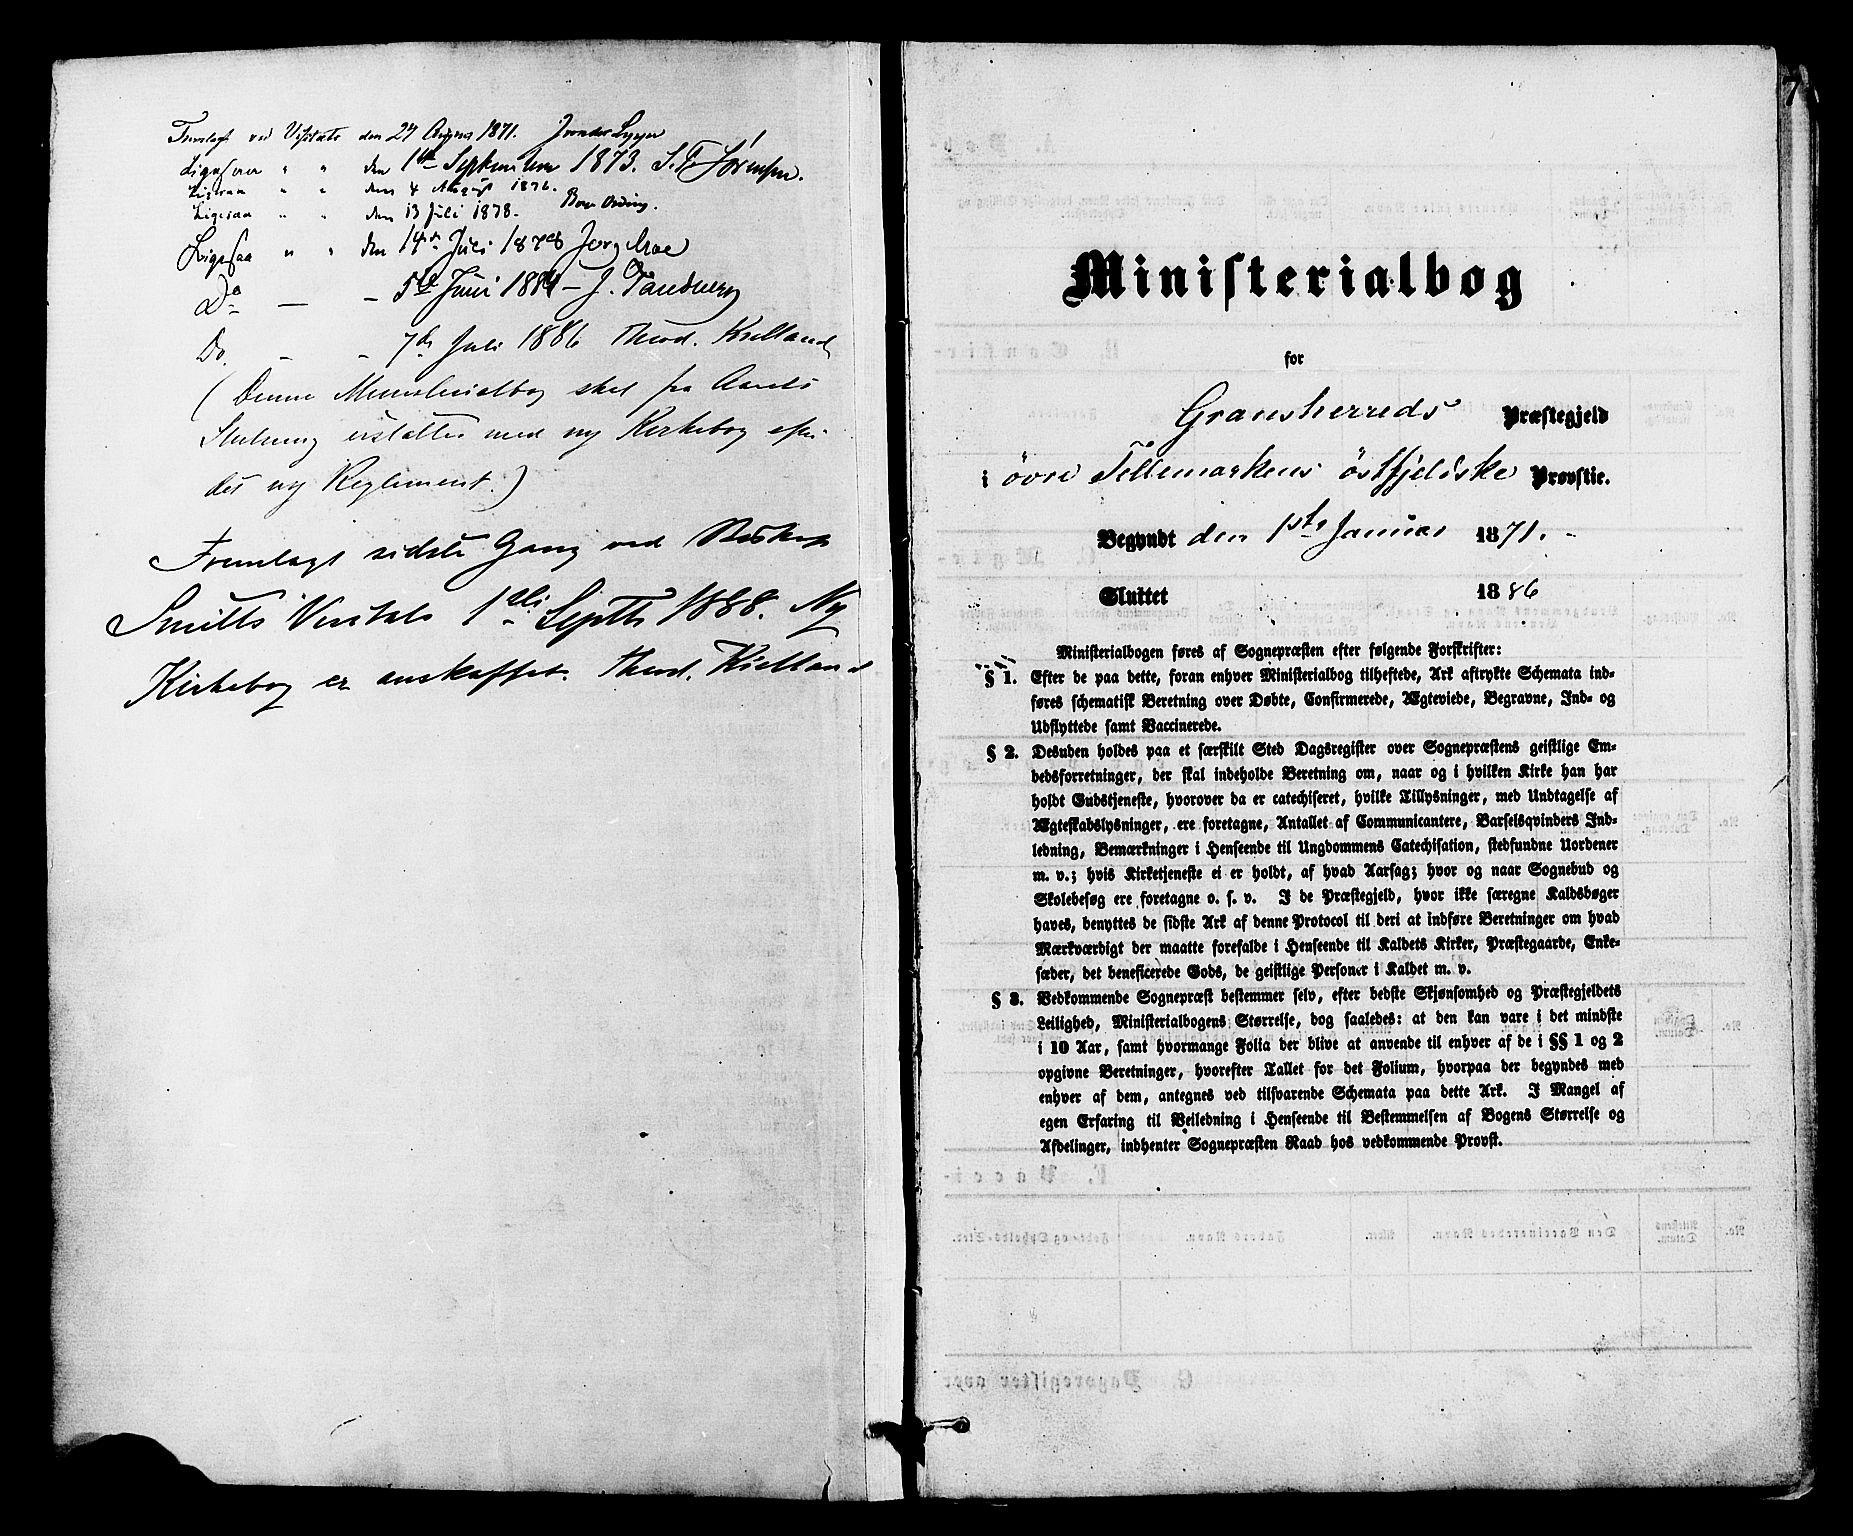 Fremlagt ved Visitats den 24 August 1871.
Ligesaa " " den 1ste September 1873. S. T. Sørensen.
Ligesaa " " den 4 August 1876.
Ligesaa " " den 13 Juli 1878.
Ligesaa " " den 14de Juli 1878 Jørg Moe
Do — - 5te Juni 1884 - J. Tandberg
Do. - - 7de Juli 1886 Theod. Kielland
(Denne Ministerialbog skal fra Aarets
Slutning erstattes med ny Kirkebog efter
det ny Reglement.)
Fremlagt sidste Gang ved Biskop
Smitts Visitats 1ste Septb 1888. Ny
Kirkebog er anskaffet. Theod. Kielland
7
Ministerialbog
for
Gransherreds Præstegjeld
i øvre Tellemarkens østfjeldske Provstie.
Begyndt den 1ste Januar 1871. -
Sluttet 1886
Ministerialbogen føres af Sognepræsten efter følgende Forskrifter:
§ 1. Efter de paa dette, foran enhver Ministerialbog tilheftede, Ark aftrykte Schemata ind-
føres schematisk Beretning over Døbte, Confirmerede, Ægteviede, Begravne, Ind- og
Udflyttede samt Vaccinerede.
§ 2. Desuden holdes paa et særskilt Sted Dagsregister over Sognepræstens geistlige Em-
bedsforretninger, der skal indeholde Beretning om, naar og i hvilken Kirke han har
holdt Gudstjeneste, hvorover da er catechiseret, hvilke Tillysninger, med Undtagelse af
Ægteskabslysninger, ere foretagne, Antallet af Communicantere, Barselqvinders Ind-
ledning, Bemærkninger i Henseende til Ungdommens Catechisation, stedfundne Uordener
m. v.; hvis Kirketjeneste ei er holdt, af hvad Aarsag; hvor og naar Sognebud og
Skolebesøg ere foretagne o. s. v. I de Præstegjeld, hvor ikke særegne Kaldsbøger
haves, benyttes de sidste Ark af denne Protocol til deri at indføre Beretninger om hvad
Mærkværdigt der maatte forefalde i Henseende til Kaldets Kirker, Præstegaarde, Enke-
sæder, det beneficerede Gods, de geistlige Personer i Kaldet m. v.
§ 3. Vedkommende Sognepræst bestemmer selv, efter bedste Skjønsomhed og Præstegjeldets
Leilighed, Ministerialbogens Størrelse, dog saaledes: at den kan vare i det mindste
i 10 Aar, samt hvormange Folia der blive at anvende til enhver af de i §§ 1 og 2
opgivne Beretninger, hvorefter Tallet for det Folium, hvorpaa der begyndes med
enhver af dem, antegnes ved tilsvarende Schemata paa dette Ark. I Mangel af
egen Erfaring til Veiledning i Henseende til Bestemmelsen af Bogens Størrelse og
Afdelinger, indhenter Sognepræsten Raad hos vedkommende Provst.